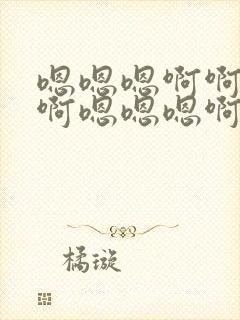 嗯嗯嗯啊啊
啊嗯嗯嗯啊
橘璇